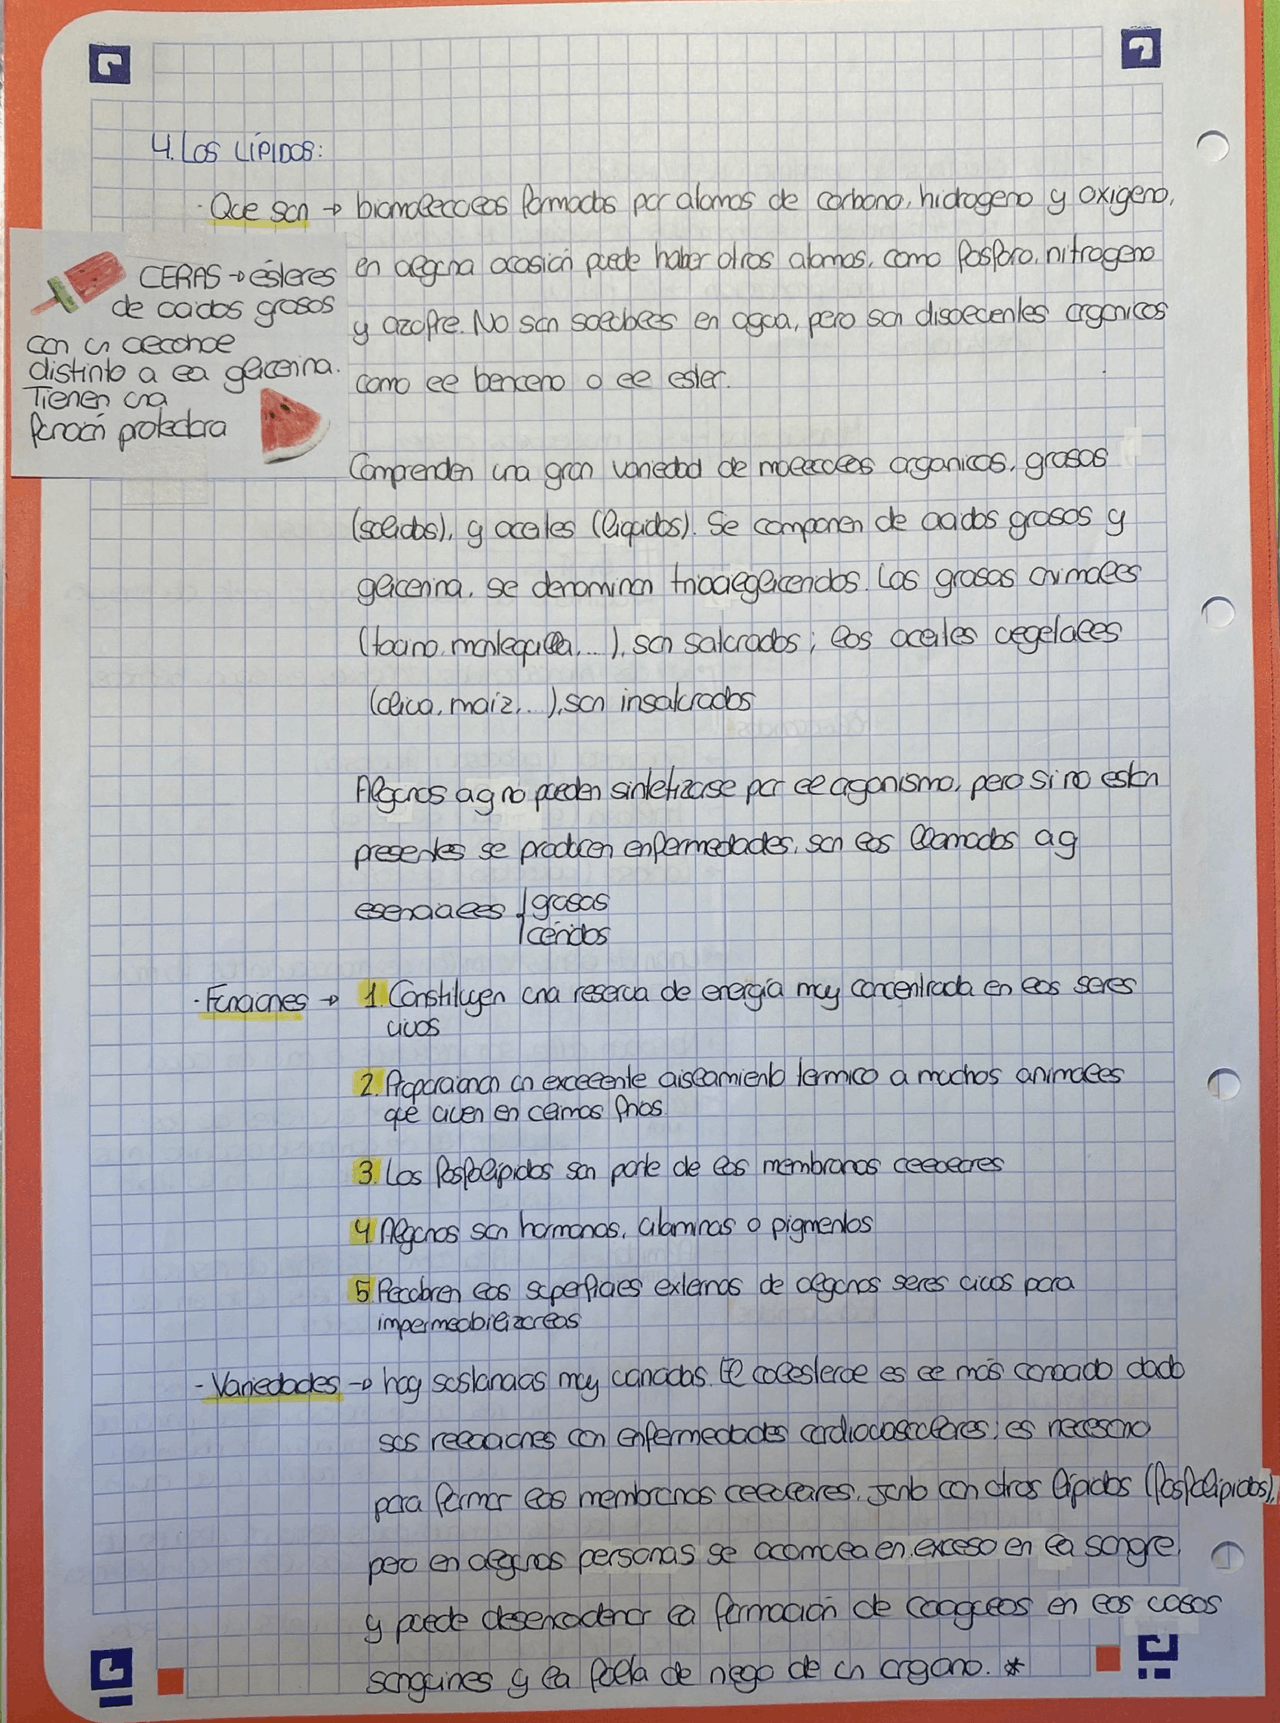 4. Los LÍPIDOS:
· Que son → biomoleculas formadas por atomos de carbono, hidrogeno y oxigeno,
en alguna ocasión puede haber otros atomos, como fosforo, nitrogeno
y azufre. No son solubles en agua, pero son disolventes organicos
como el benceno o el ester.
CERAS → ésteres
de acidos grasos
con un alcohol
distinto a la glicerina.
Tienen una
función protectora
Comprenden una gran variedad de moleculas organicas, grasas
(solidas), y aceites (liquidos). Se componen de acidos grasos y
glicerina, se denominan triacilgliceridos. Las grasas animales
(tocino, mantequilla, ...), son saturados; los aceites vegetales
(oliva, maíz, ...), son insaturados
Algunos ag no pueden sintetizase por el oganismo, pero si no estan
presentes se producen enfermedades, son los llamados ag
esenciales grasas
céridos
· Funciones → 1. Constituyen una reserva de energía muy concentrada en los seres
vivos
2. Proporcionan un excelente aislamiento termico a muchos animales
que viven en climas frios.
3. Los fosfolipidos son parte de las membranas celulares
4 Algunos son hormonas, vitaminas o pigmentos
5 Recubren las superficies externas de algunos seres vivos para
impermeabilizarlas
- Variedades → hay sustancias muy variadas. El colesterol es el más conocido dado
sus relaciones con enfermedades cardiovasculares; es necesario
para formar las membranas celulares, junto con otros lípidos (fosfolípidos),
pero en algunas personas se acumula en exceso en la sangre,
y puede desencadenar la formación de coagulos en los vasos
sanguines y la falta de riego de un organo. *